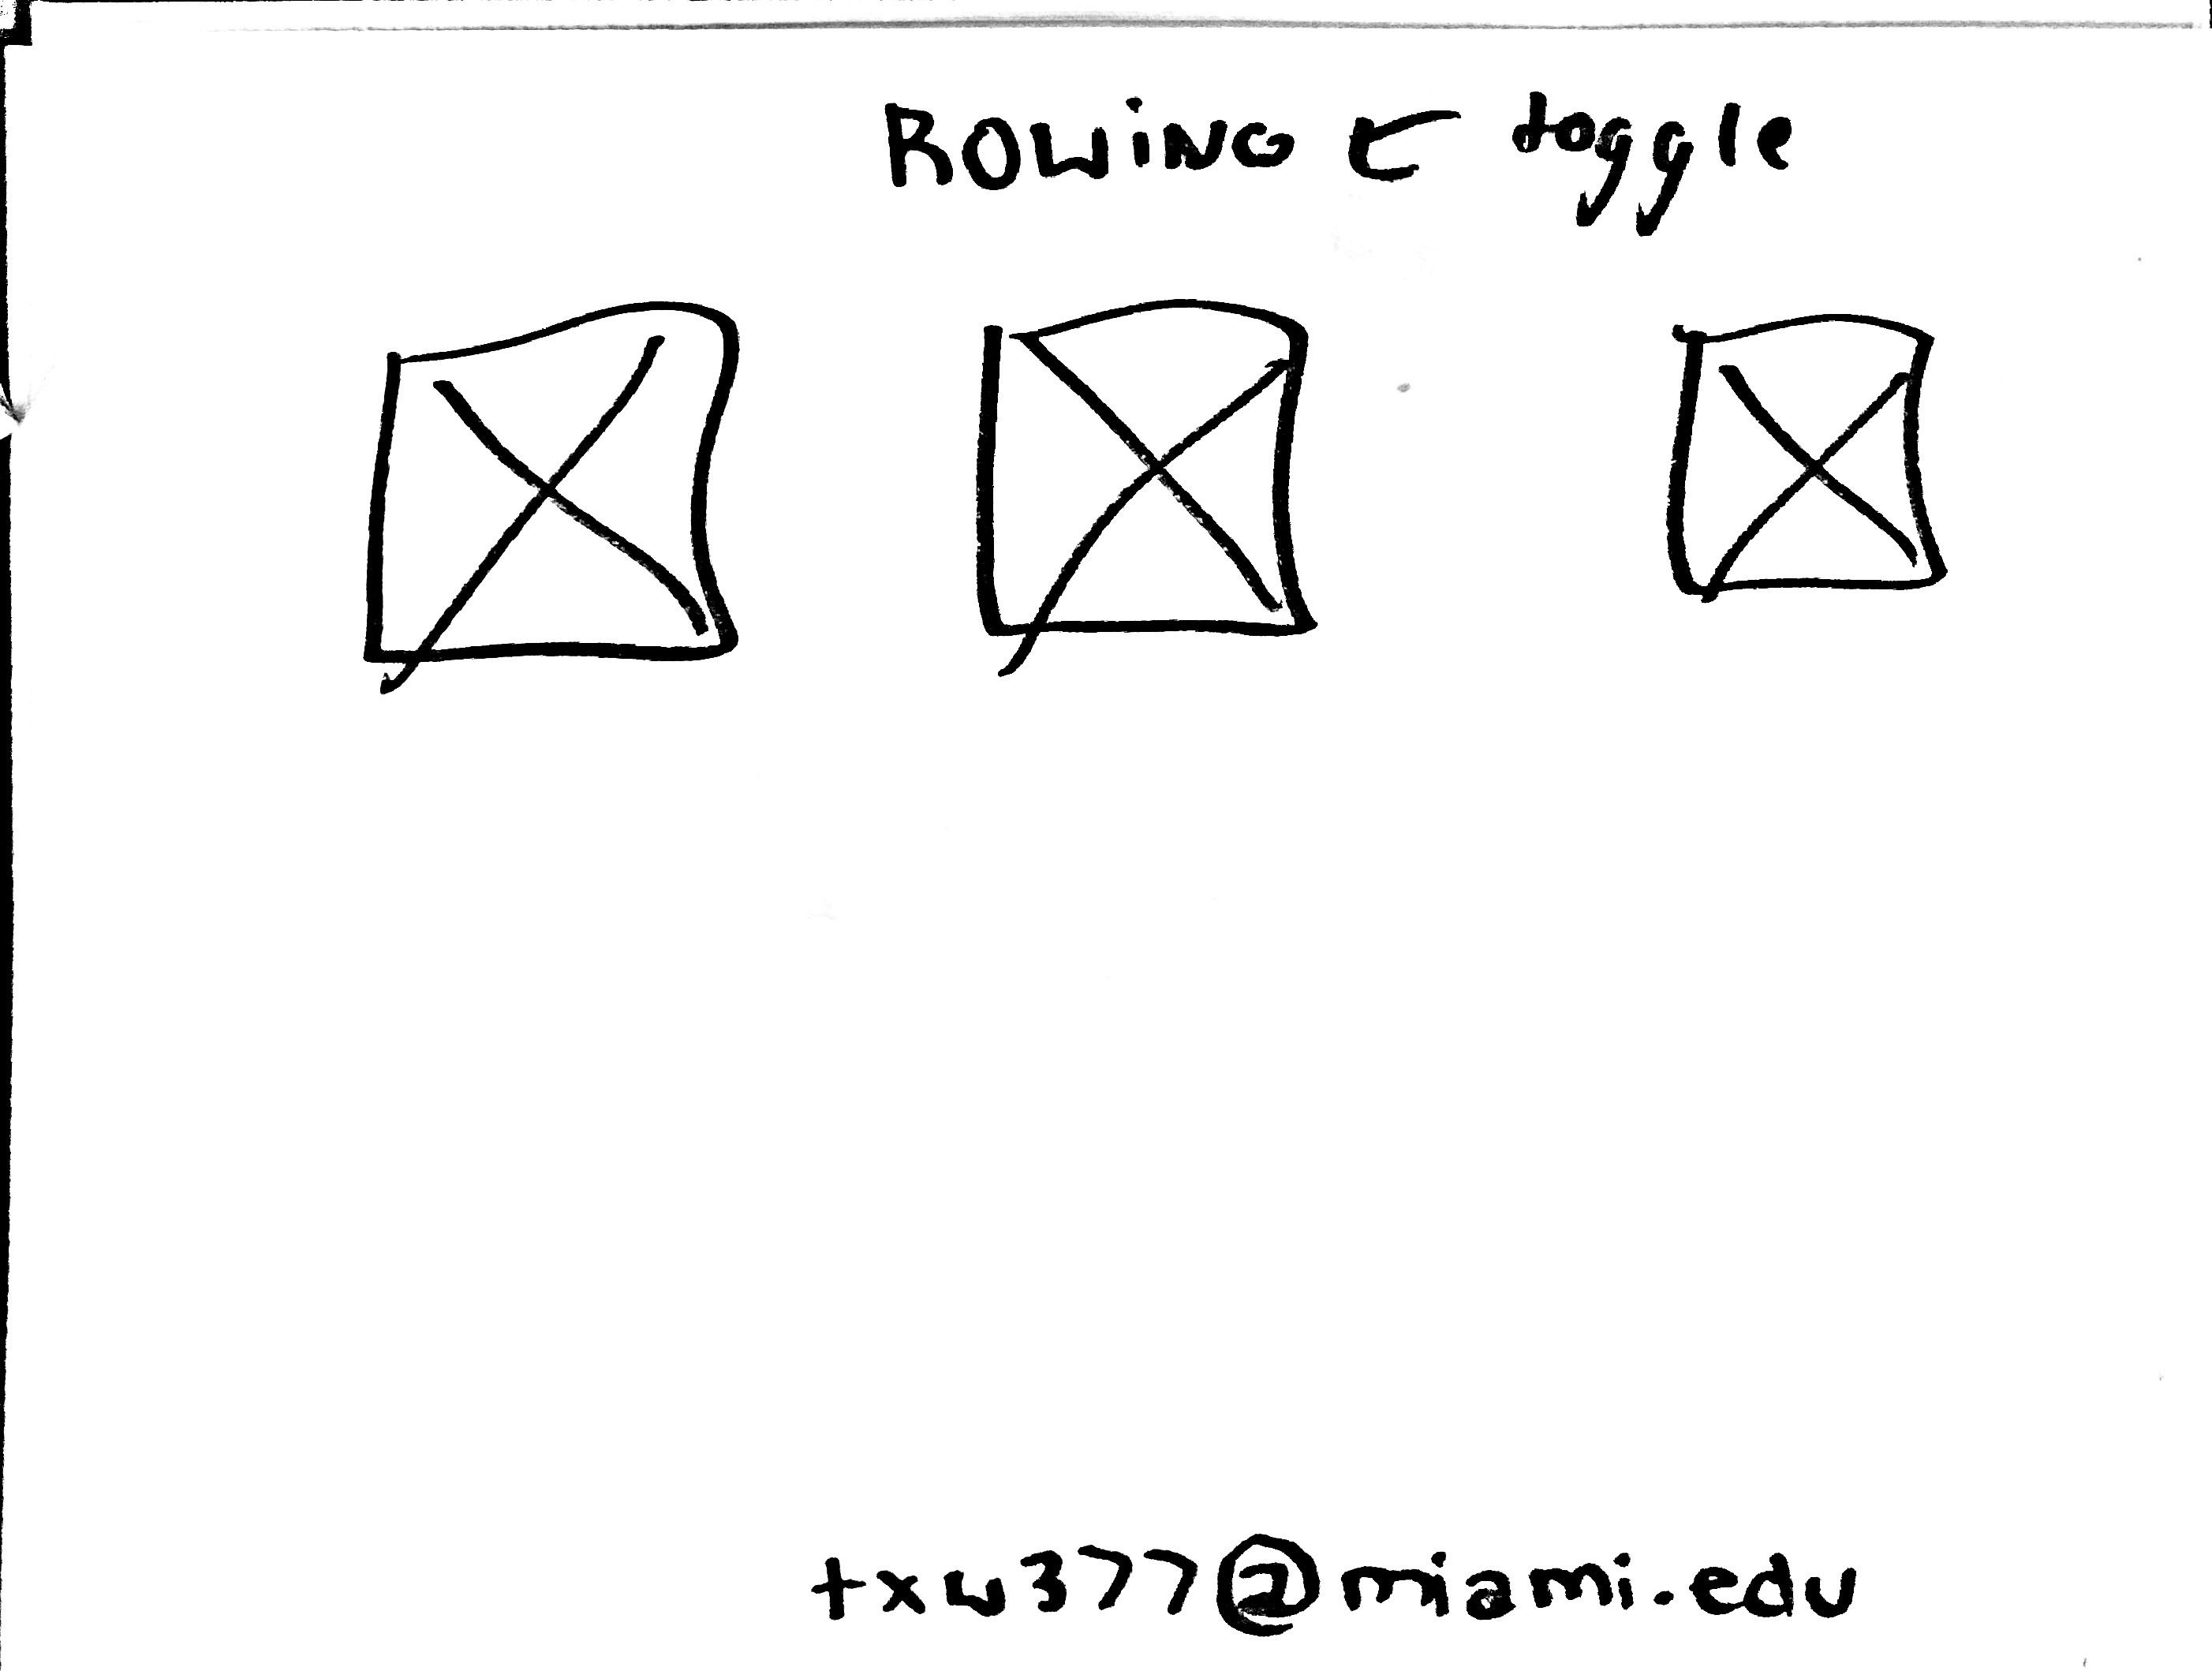 ROWING ← toggle
txw377@miami.edu